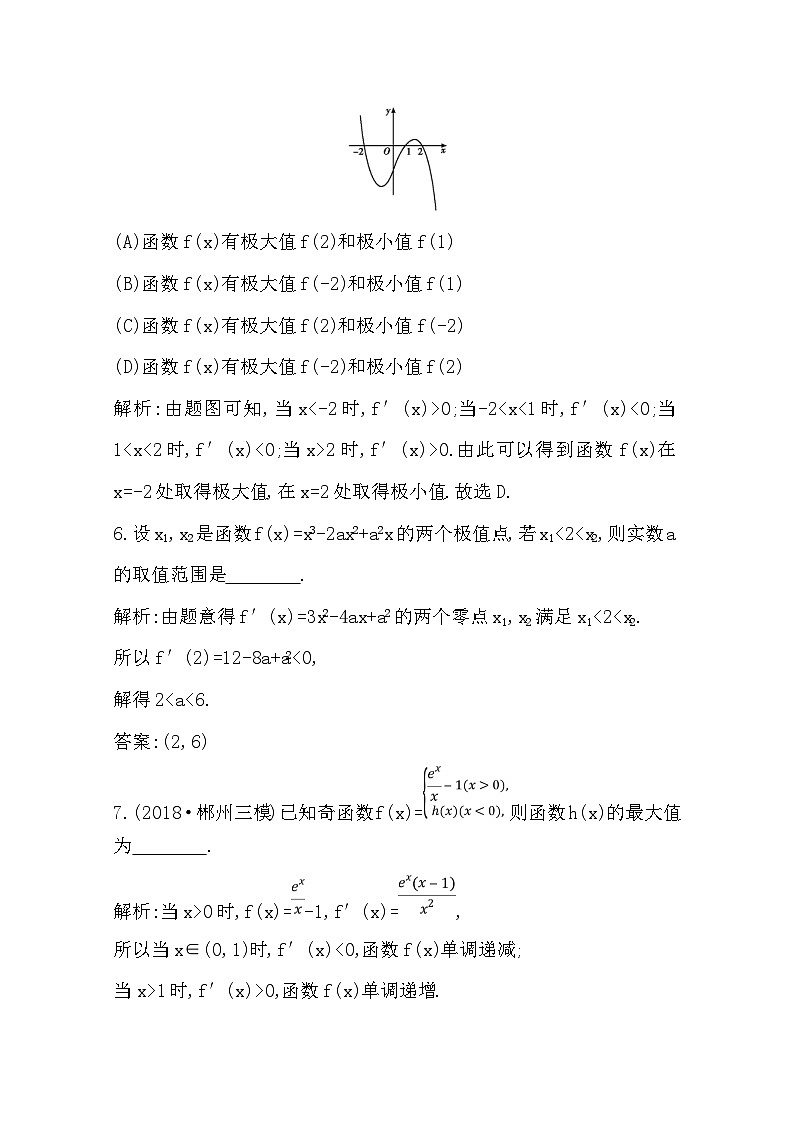 y
-2 O 1 2 x
(A)函数f(x)有极大值f(2)和极小值f(1)
(B)函数f(x)有极大值f(-2)和极小值f(1)
(C)函数f(x)有极大值f(2)和极小值f(-2)
(D)函数f(x)有极大值f(-2)和极小值f(2)
解析:由题图可知,当x<-2时,f′(x)>0;当-2<x<1时,f′(x)<0;当
1<x<2时,f′(x)<0;当x>2时,f′(x)>0.由此可以得到函数f(x)在
x=-2处取得极大值,在x=2处取得极小值.故选D.
6.设x₁,x₂是函数f(x)=x³-2ax²+a²x的两个极值点,若x₁<2<x₂,则实数a
的取值范围是________.
解析:由题意得f′(x)=3x²-4ax+a²的两个零点x₁,x₂满足x₁<2<x₂.
所以f′(2)=12-8a+a²<0,
解得2<a<6.
答案:(2,6)
7.(2018·郴州三模)已知奇函数f(x)={e^x/x-1(x>0), h(x)(x<0), 则函数h(x)的最大值
为________.
解析:当x>0时,f(x)=e^x/x-1,f′(x)=e^x(x-1)/x²,
所以当x∈(0,1)时,f′(x)<0,函数f(x)单调递减;
当x>1时,f′(x)>0,函数f(x)单调递增.